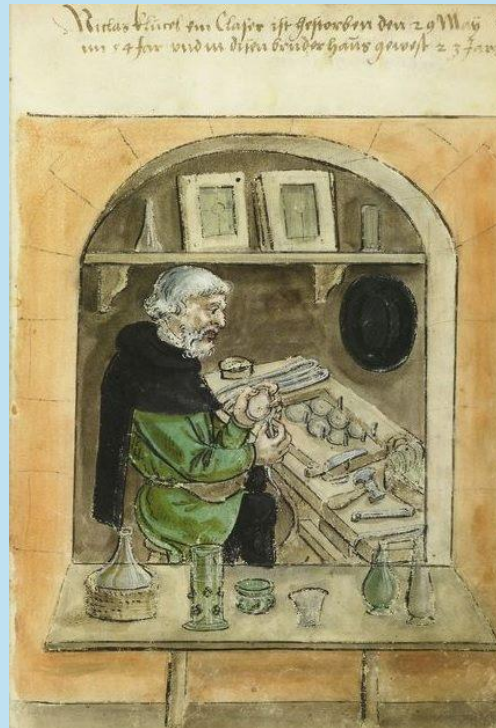 Niclas klücel ein Claser ist gestorben den 29 May
im 54 Jar vnd in disen bruderhaüs gewest 23 Jar